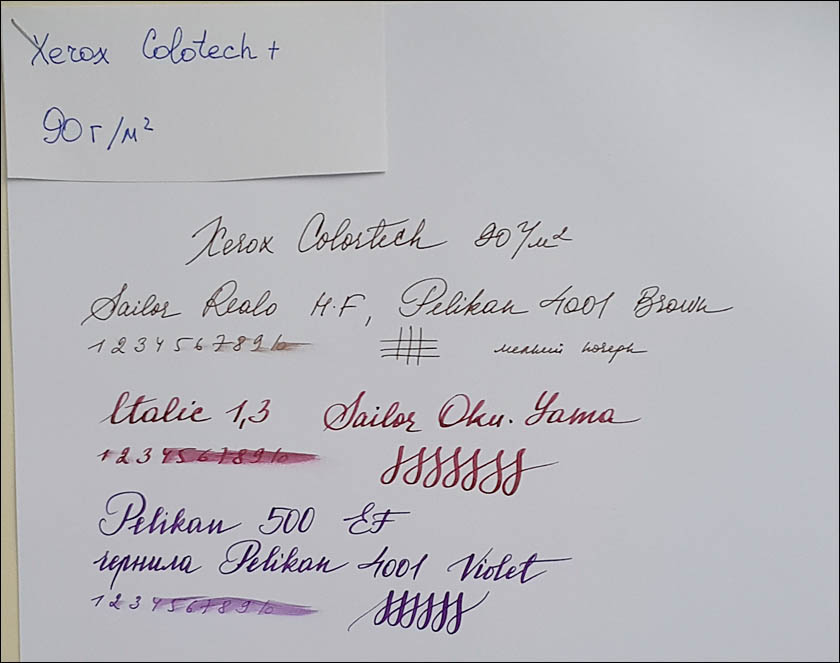 Xerox Colotech +
90 г/м²
Xerox Colortech 90 г/м²
Sailor Realo H-F, Pelikan 4001 Brown
1 2 3 4 5 6 7 8 9 10 мелкий почерк
Italic 1,3 Sailor Oku. Yama
1 2 3 4 5 6 7 8 9 10
Pelikan 500 EF
чернила Pelikan 4001 Violet
1 2 3 4 5 6 7 8 9 10